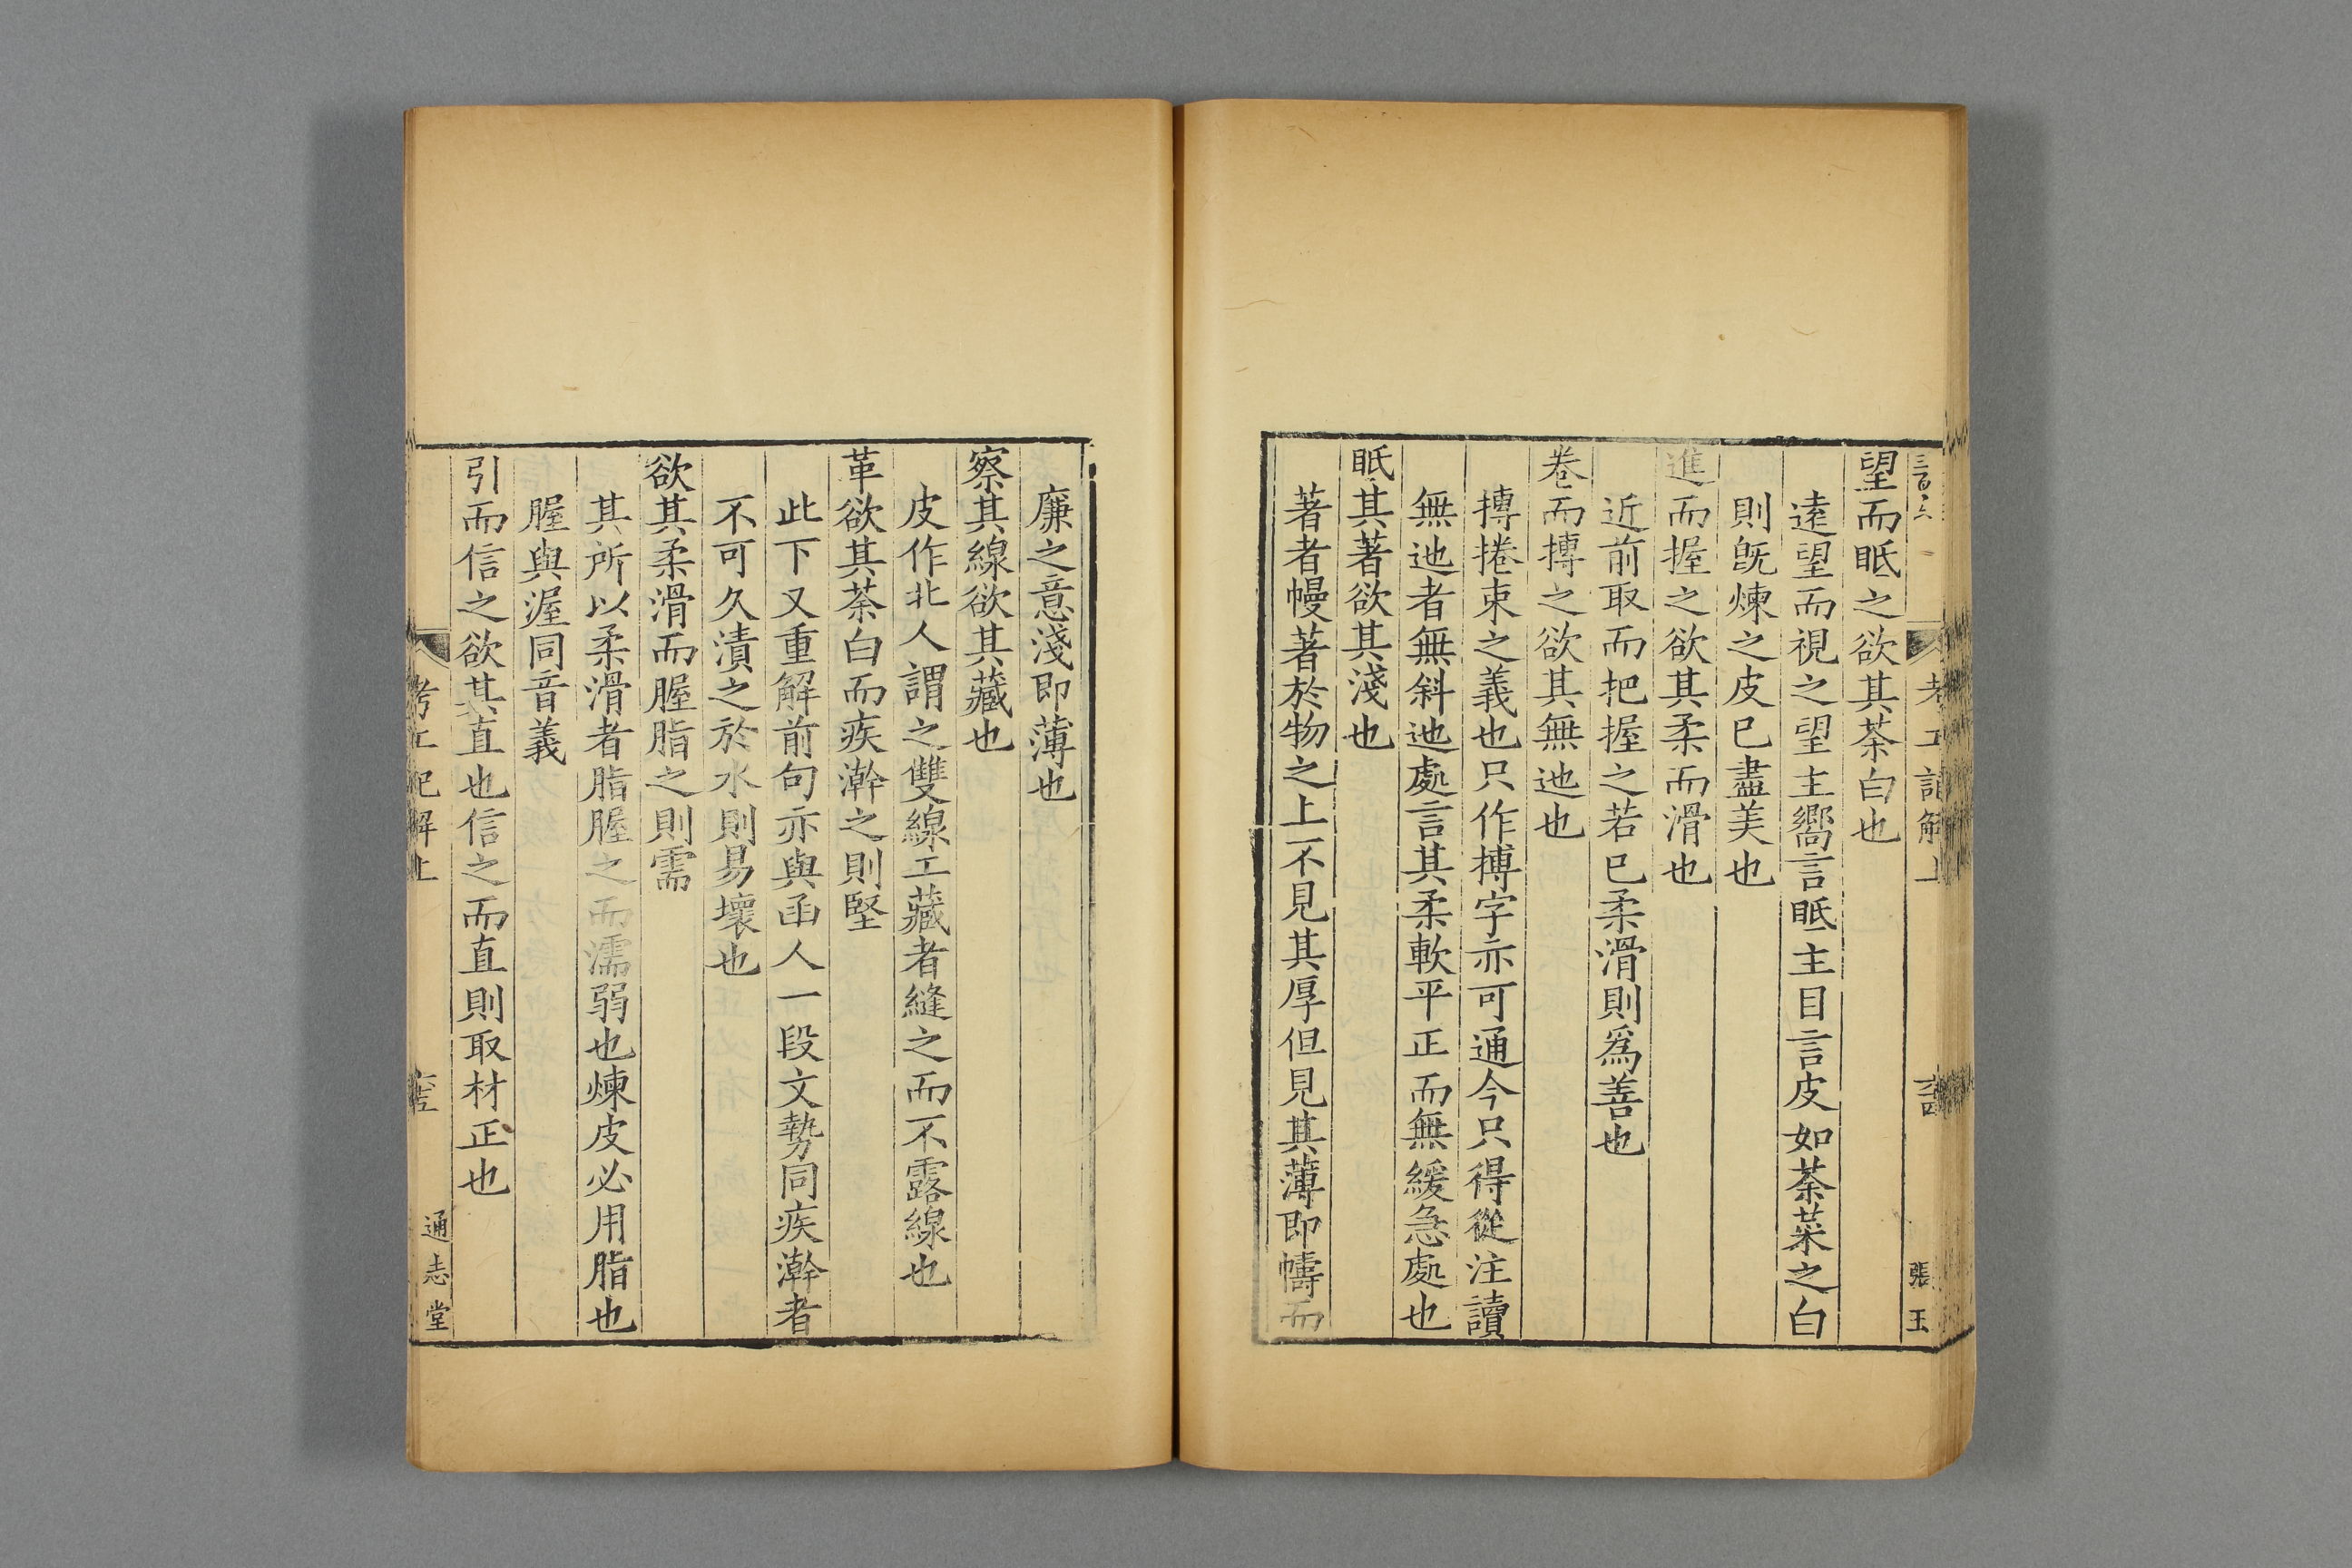 望而眡之欲其荼白也
遠望而視之望主嚮言眡主目言皮如荼菜之白
則旣煉之皮已盡美也
進而握之欲其柔而滑也
近前取而把握之若已柔滑則爲善也
卷而摶之欲其無迆也
摶捲束之義也只作摶字亦可通今只得從注讀
無迆者無斜迆處言其柔軟平正而無緩急處也
眡其著欲其淺也
著者幔著於物之上不見其厚但見其薄即幬而
廉之意淺即薄也
察其線欲其藏也
皮作北人謂之雙線工藏者縫之而不露線也
革欲其荼白而疾澣之則堅
此下又重解前句亦與函人一段文勢同疾澣者
不可久漬之於水則易壞也
欲其柔滑而腛脂之則需
其所以柔滑者脂腛之而濡弱也煉皮必用脂也
腛與渥同音義
引而信之欲其直也信之而直則取材正也
考工記解上
通志堂
考工記解上
張玉